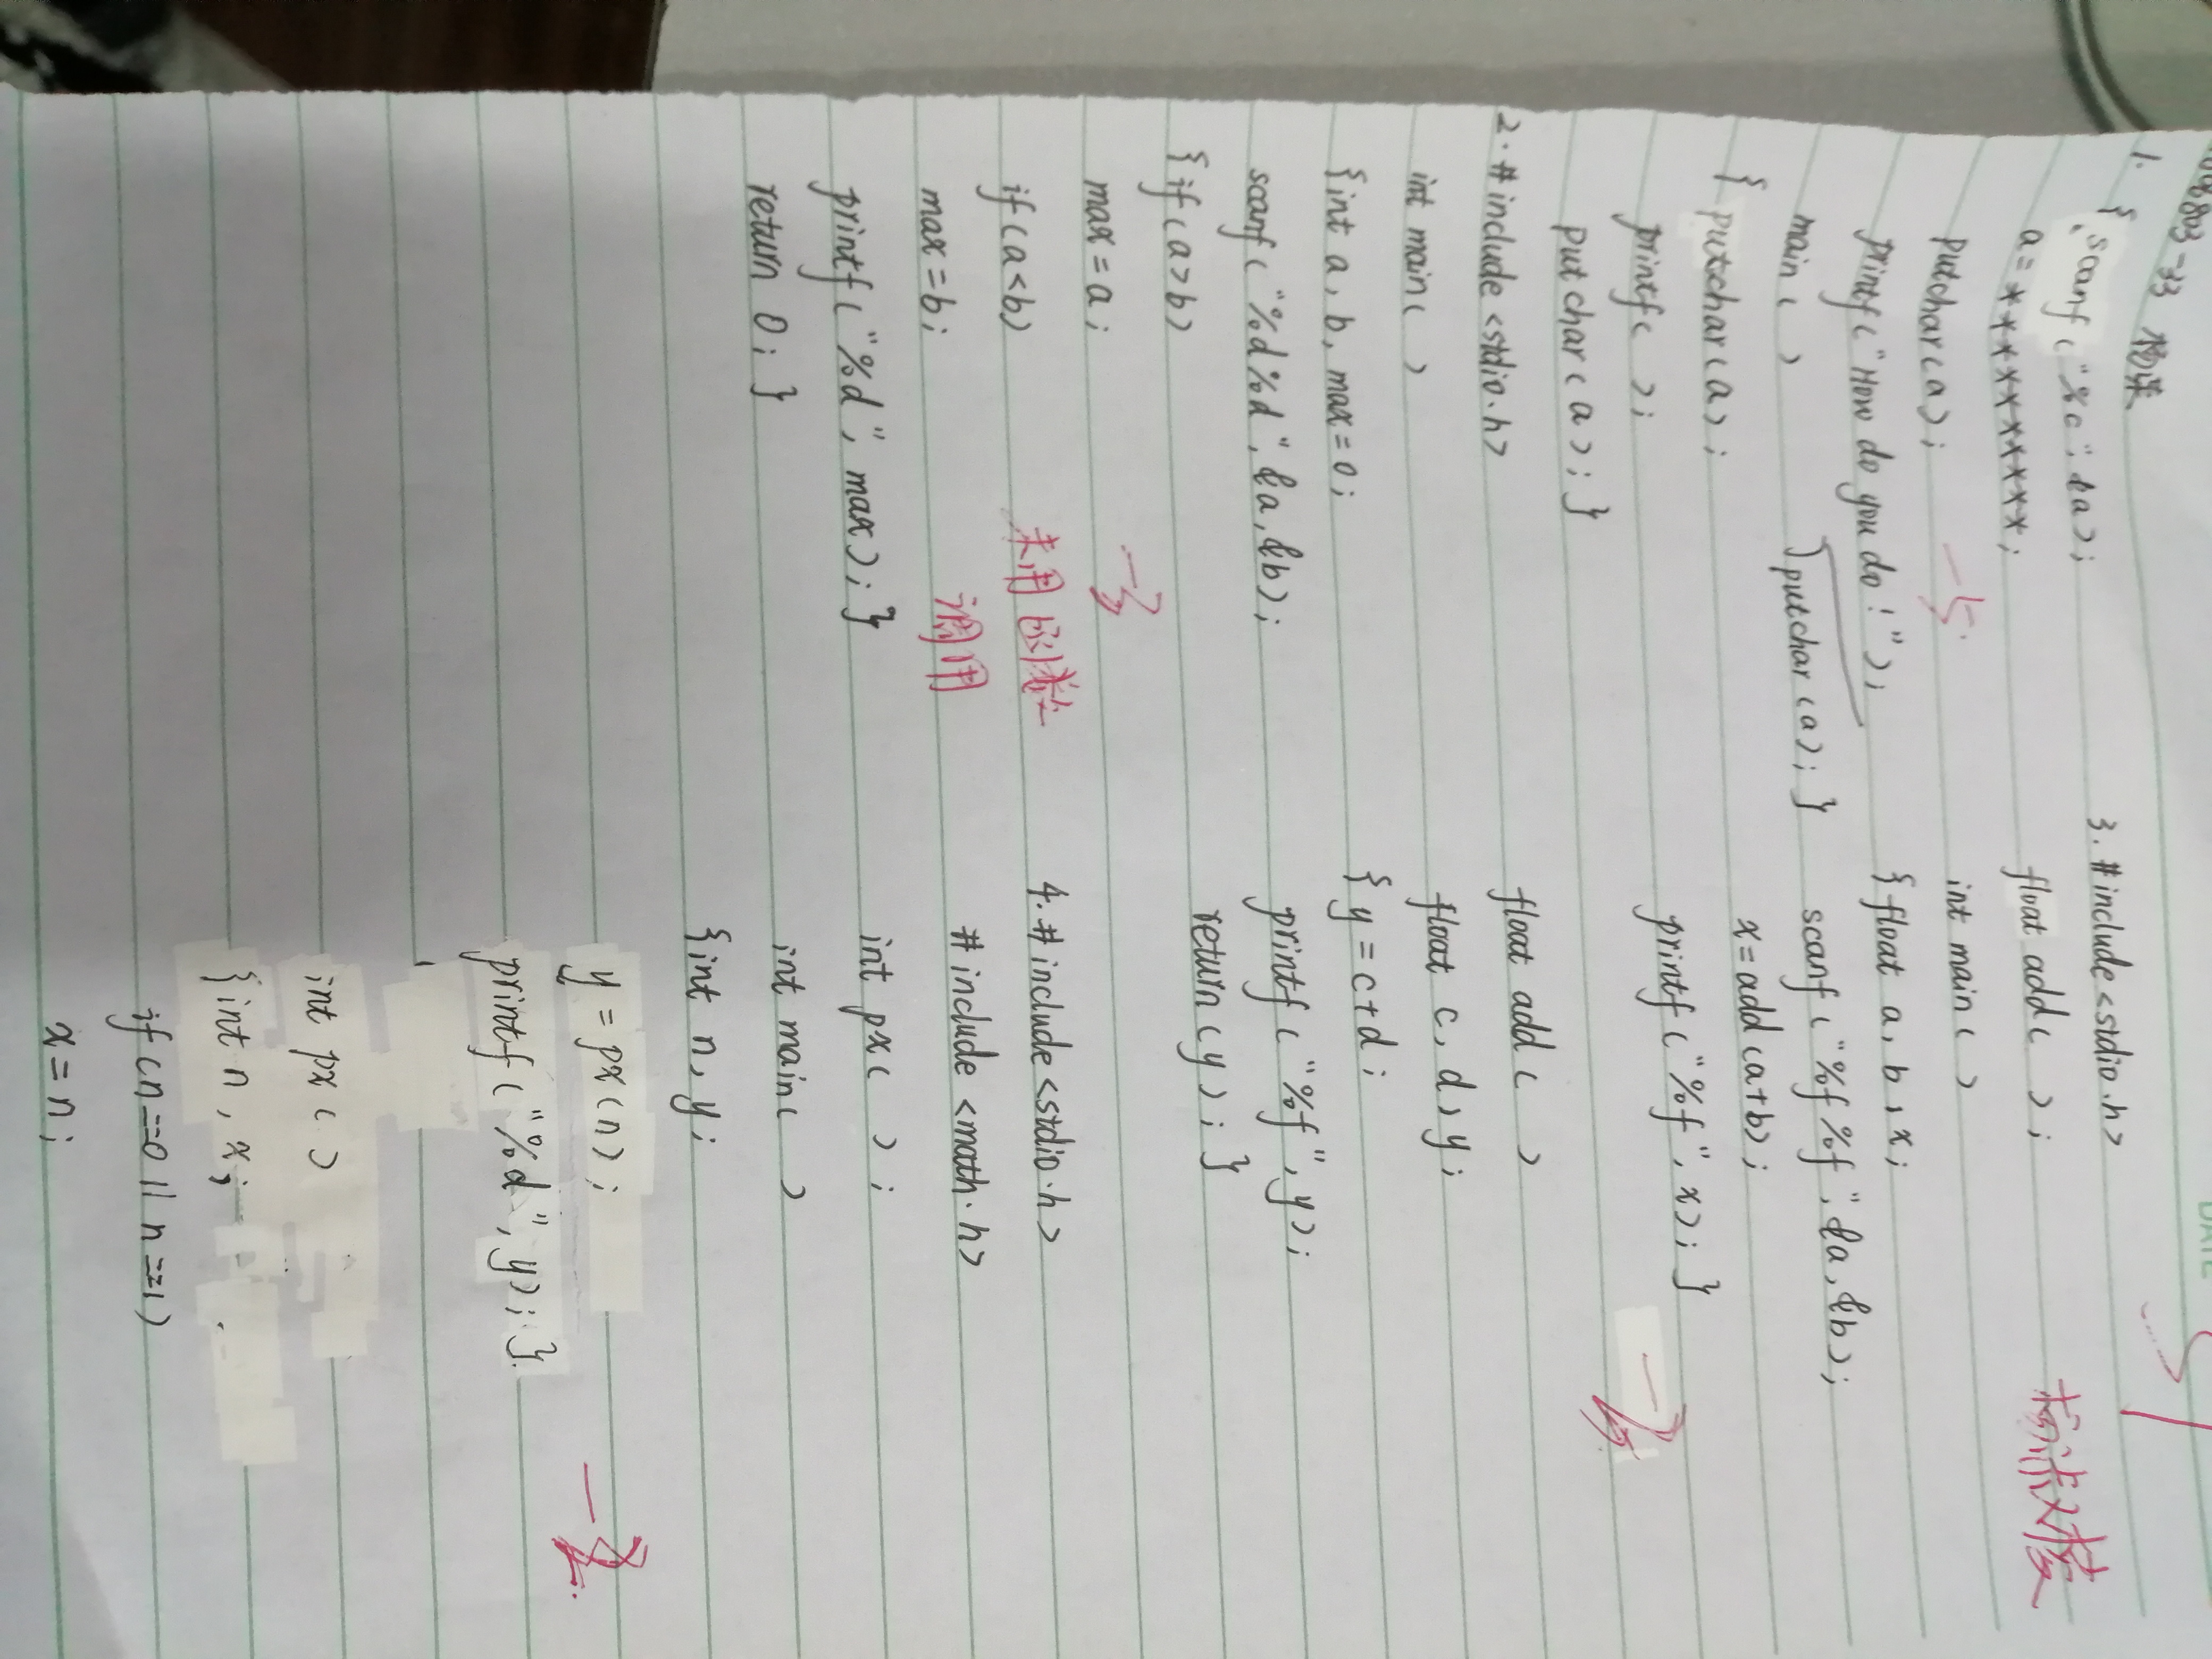 1.
{ scanf("%c",&a);
a=**********;
putchar(a);
-5
printf("How do you do!");
main( )
putchar(a);}
{ putchar(a);
printf( );
putchar(a);}
2.#include<stdio.h>
int main( )
{int a,b,max=0;
scanf("%d%d",&a,&b);
{if(a>b)
max=a;
if(a<b)
未用函数
max=b;
调用
printf("%d",max);}
return 0;}
3.#include<stdio.h>
float add( );
int main( )
{float a,b,x;
scanf("%f%f",&a,&b);
x=add(a+b);
printf("%f",x);}
float add( )
float c,d,y;
{y=c+d;
printf("%f",y);
return(y);}
4.#include<stdio.h>
#include<math.h>
int px( );
int main( )
{int n,y;
y=px(n);
printf("%d",y);}
int px( )
{int n,x;
if(n==0||n==1)
x=n;